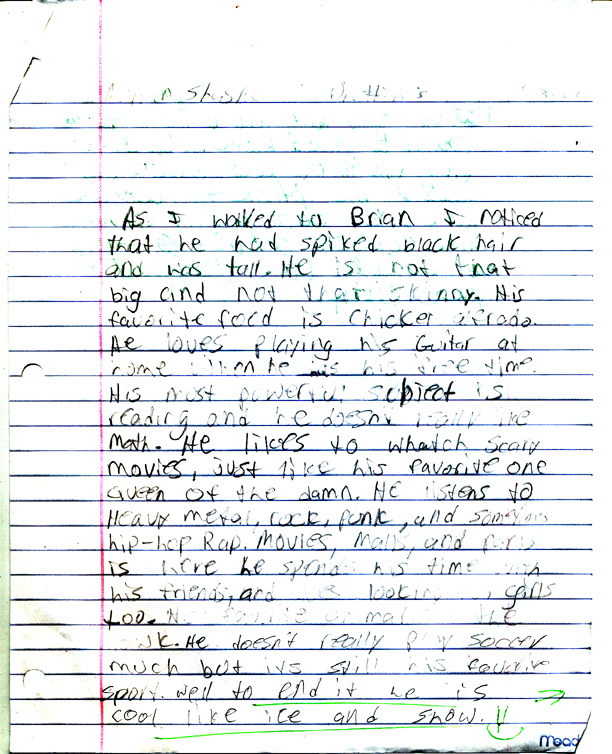 As I walked to Brian I noticed
that he had spiked black hair
and was tall. He is not that
big and not that skinny. His
favorite food is Chicken alfredo.
He loves playing his Guitar at
home when he his free time.
His most powerful subject is
reading and he doesn't really like
Math. He likes to whatch scary
movies, Just like his favorite one
Queen of the damn. He listens to
Heavy metal, rock, punk, and sometimes
hip-hop Rap. Movies, Malls, and
is here he spends his time with
his friends, and looking girls
too. the
He doesn't really play soccer
much but its still his favorite
sport. well to end it he is
cool like ice and snow.!!
Mead